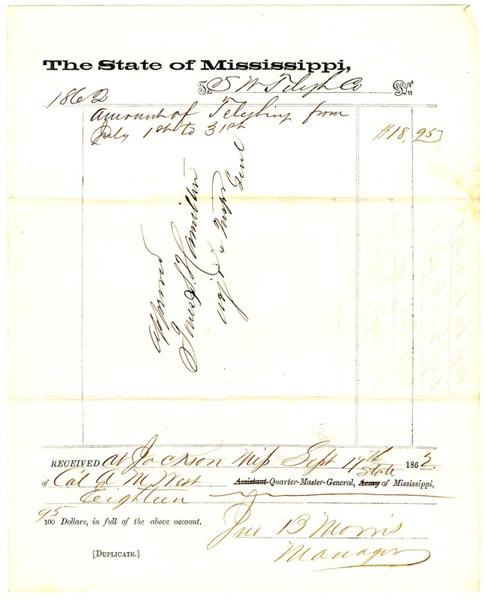 The State of Mississippi,
To S W Telegh Co Dr.
1862
Amount of Telephing from
July 1st to 31st $18,95
Approved
Jones S. Hamilton
Adjt & Inspr Genl
RECEIVED at Jackson Mis Sept 17th 1862
of Col A M West Assistant Quarter-Master-General, Army State of Mississippi,
Eighteen
95
100 Dollars, in full of the above account.
[DUPLICATE.]
Jno B Morris
Manager